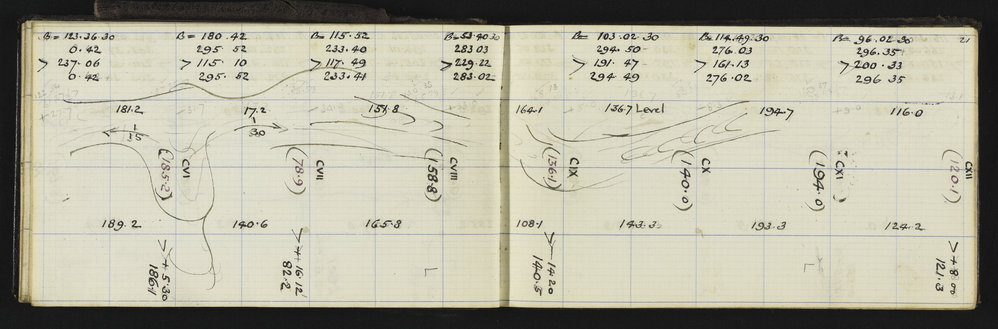 B = 123.36.30 B = 180.42 B = 115.52 B = 53.40.30
0.42 295 52 233.40 283 03
> 237.06 > 115 10 > 117.49 > 229.22
0.42 295. 52 233.41 283.02
181.2 17.2 151.8
1/35 1/30
(185.2) CVI (78.9) CVII (158.8) CVIII
189.2 140.6 165.8
> + 5.30
186.1
> + 16.12
82.2
L
B = 103.02.30 B = 114.49.30 B = 96.02.30 21
294.50 276.03 296.35
> 191.47 > 161.13 > 200.33
294 49 276.02 296 35
164.1 136.7 Level 194.7 116.0
(136.1) CIX (140.0) CX (194.0) CXI (120.1) CXII
108.1 143.3 193.3 124.2
> - 14.20
140.5
L
> + 8.00
121.3